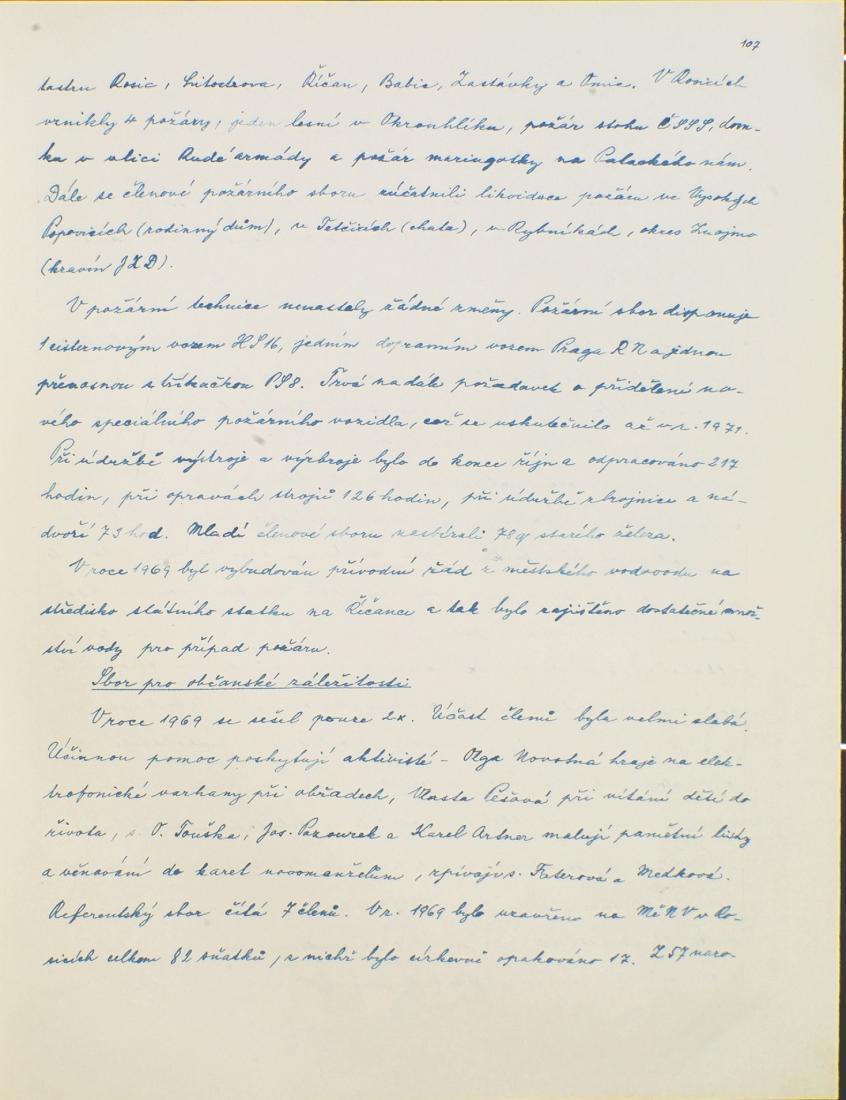 107
tastru Rosic, Litostrova, Říčan, Babic, Zastávky a Omic. V Rosicích
vznikly 4 požáry, jeden lesní v Okrouhlíku, požár stohu ČSSS, dom-
ka v ulici Rudé armády a požár maringotky na Palackého nám.
Dále se členové požárního sboru zúčastnili likvidace požáru ve Vysokých
Popovicích (rodinný dům), v Tetčicích (chata), v Rybníkách, okres Znojmo
(kravín JZD).
V požární technice nenastaly žádné změny. Požární sbor disponuje
1 cisternovým vozem HS16, jedním dopravním vozem Praga RN a jednou
přenosnou stříkačkou PS8. Trvá nadále požadavek o přidělení no-
vého speciálního požárního vozidla, což se uskutečnilo až v r. 1971.
Při údržbě výstroje a výzbroje bylo do konce října odpracováno 217
hodin, při opravách strojů 126 hodin, při údržbě zbrojnice a ná-
dvoří 73 hod. Mladí členové sboru nasbírali 78 q starého železa.
V roce 1969 byl vybudován přívodní řád z městského vodovodu na
středisko státního statku na Říčance a tak bylo zajištěno dostatečné množ-
ství vody pro případ požáru.
Sbor pro občanské záležitosti
V roce 1969 se sešel pouze 2x. Účast členů byla velmi slabá.
Účinnou pomoc poskytují aktivisté - Olga Novotná hraje na elek-
trofonické varhany při obřadech, Vlasta Pešová při vítání dětí do
života, s. V. Touška, Jos. Pazourek a Karel Artner malují pamětní listy
a věnování do karet novomanželům, zpívají s. Faterová a Medková.
Referentský sbor čítá 7 členů. V r. 1969 bylo uzavřeno na MěNV v Ro-
sicích celkem 82 sňatků, z nichž bylo církevně opakováno 17. Z 57 naro-